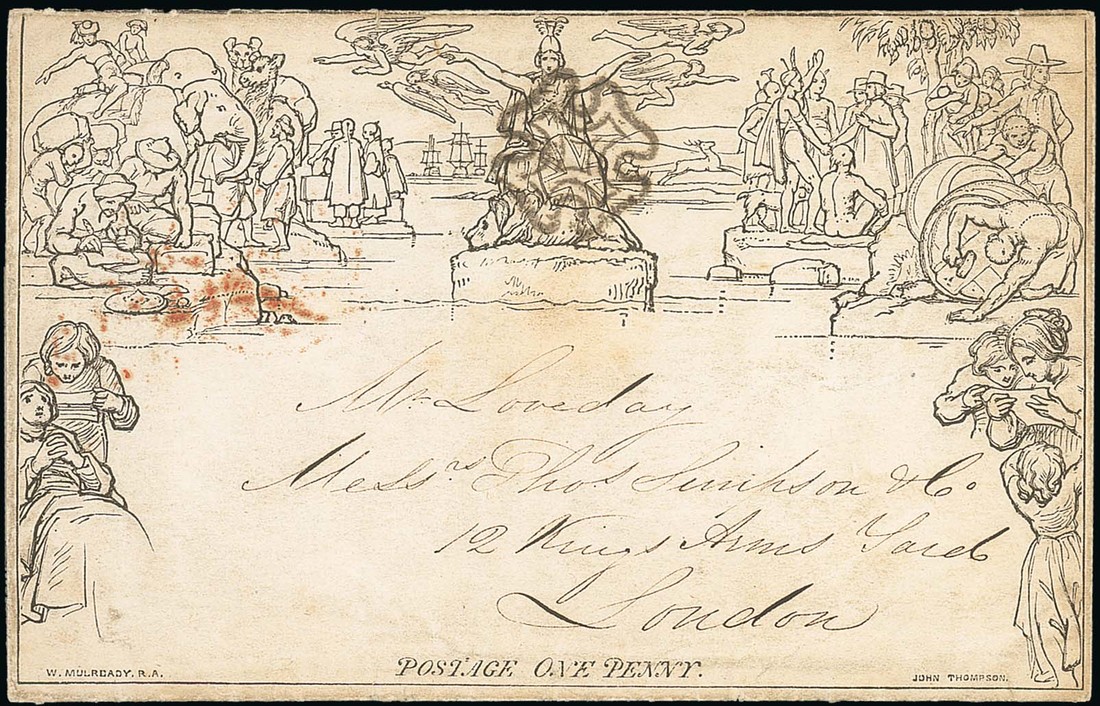 Mr. Loveday
Messrs Thos Simpson & Co.
12 Kings Arms Yard
London
POSTAGE ONE PENNY.
W. MULREADY, R.A.
JOHN THOMPSON.